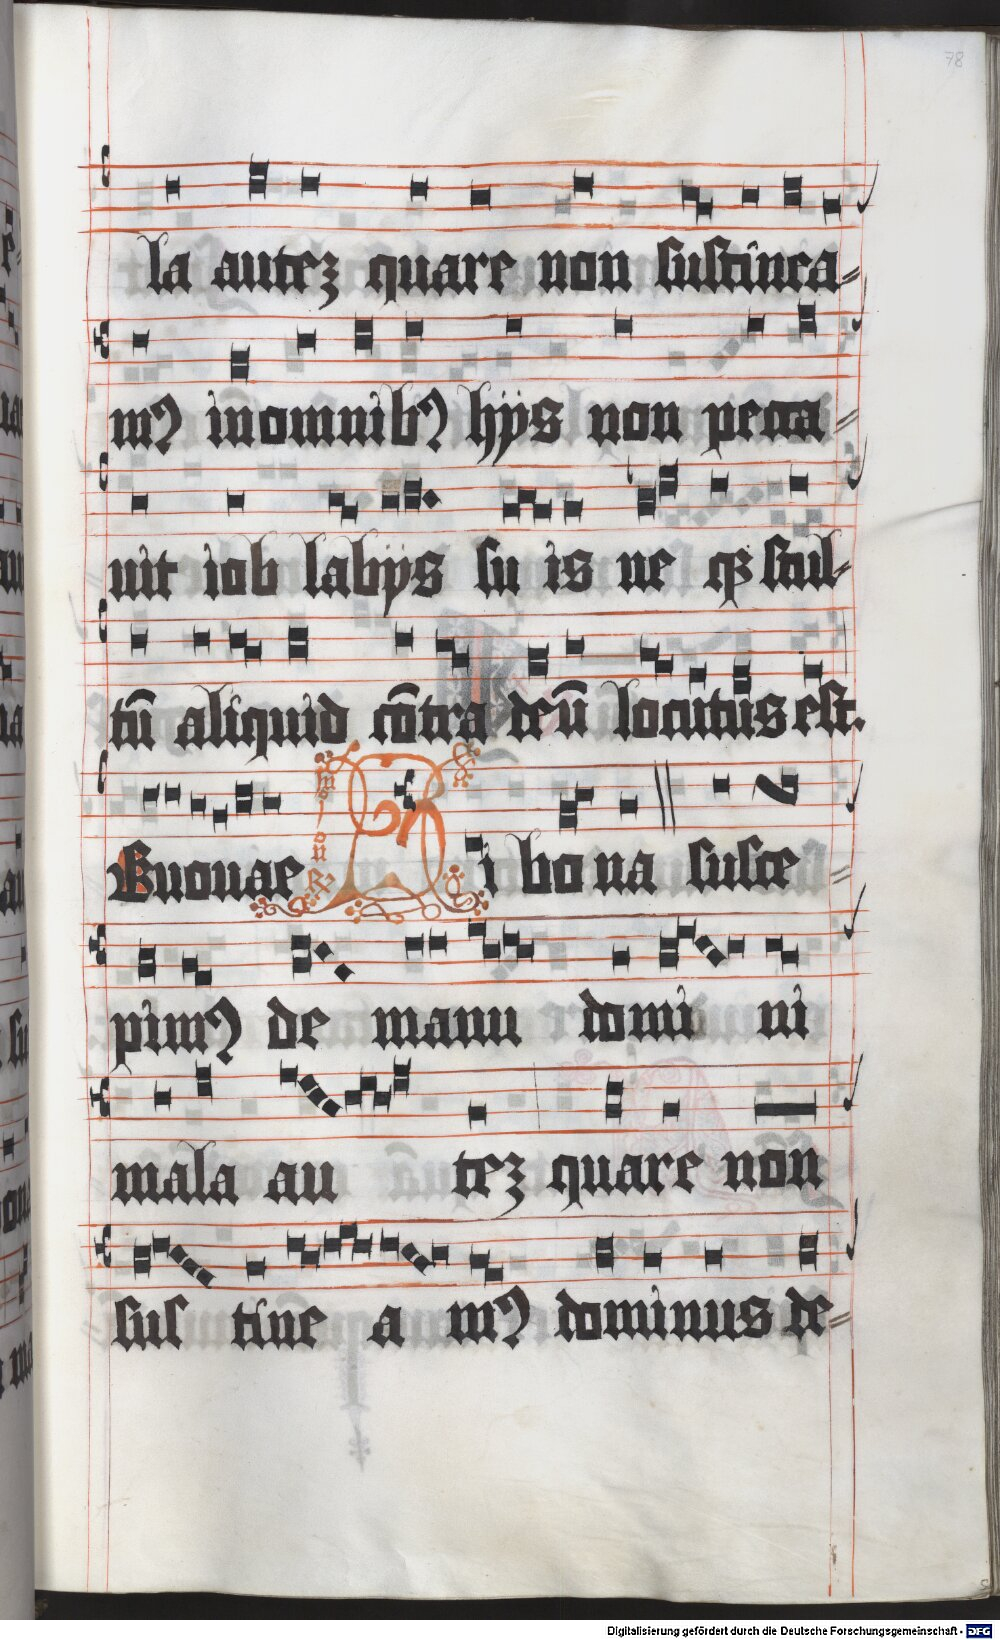 78
la autez quare non sustinea⸗
mꝰ inomnibꝰ hijs non pecca⸗
uit iob labijs su is ne qꝫ stul⸗
tū aliquid cōtra deū locutus est.
Euouae Si bo na susce⸗
pimꝰ de manu domi ni
mala au tez quare non
sus tine a mꝰ dominus de⸗
Digitalisierung gefördert durch die Deutsche Forschungsgemeinschaft - DFG